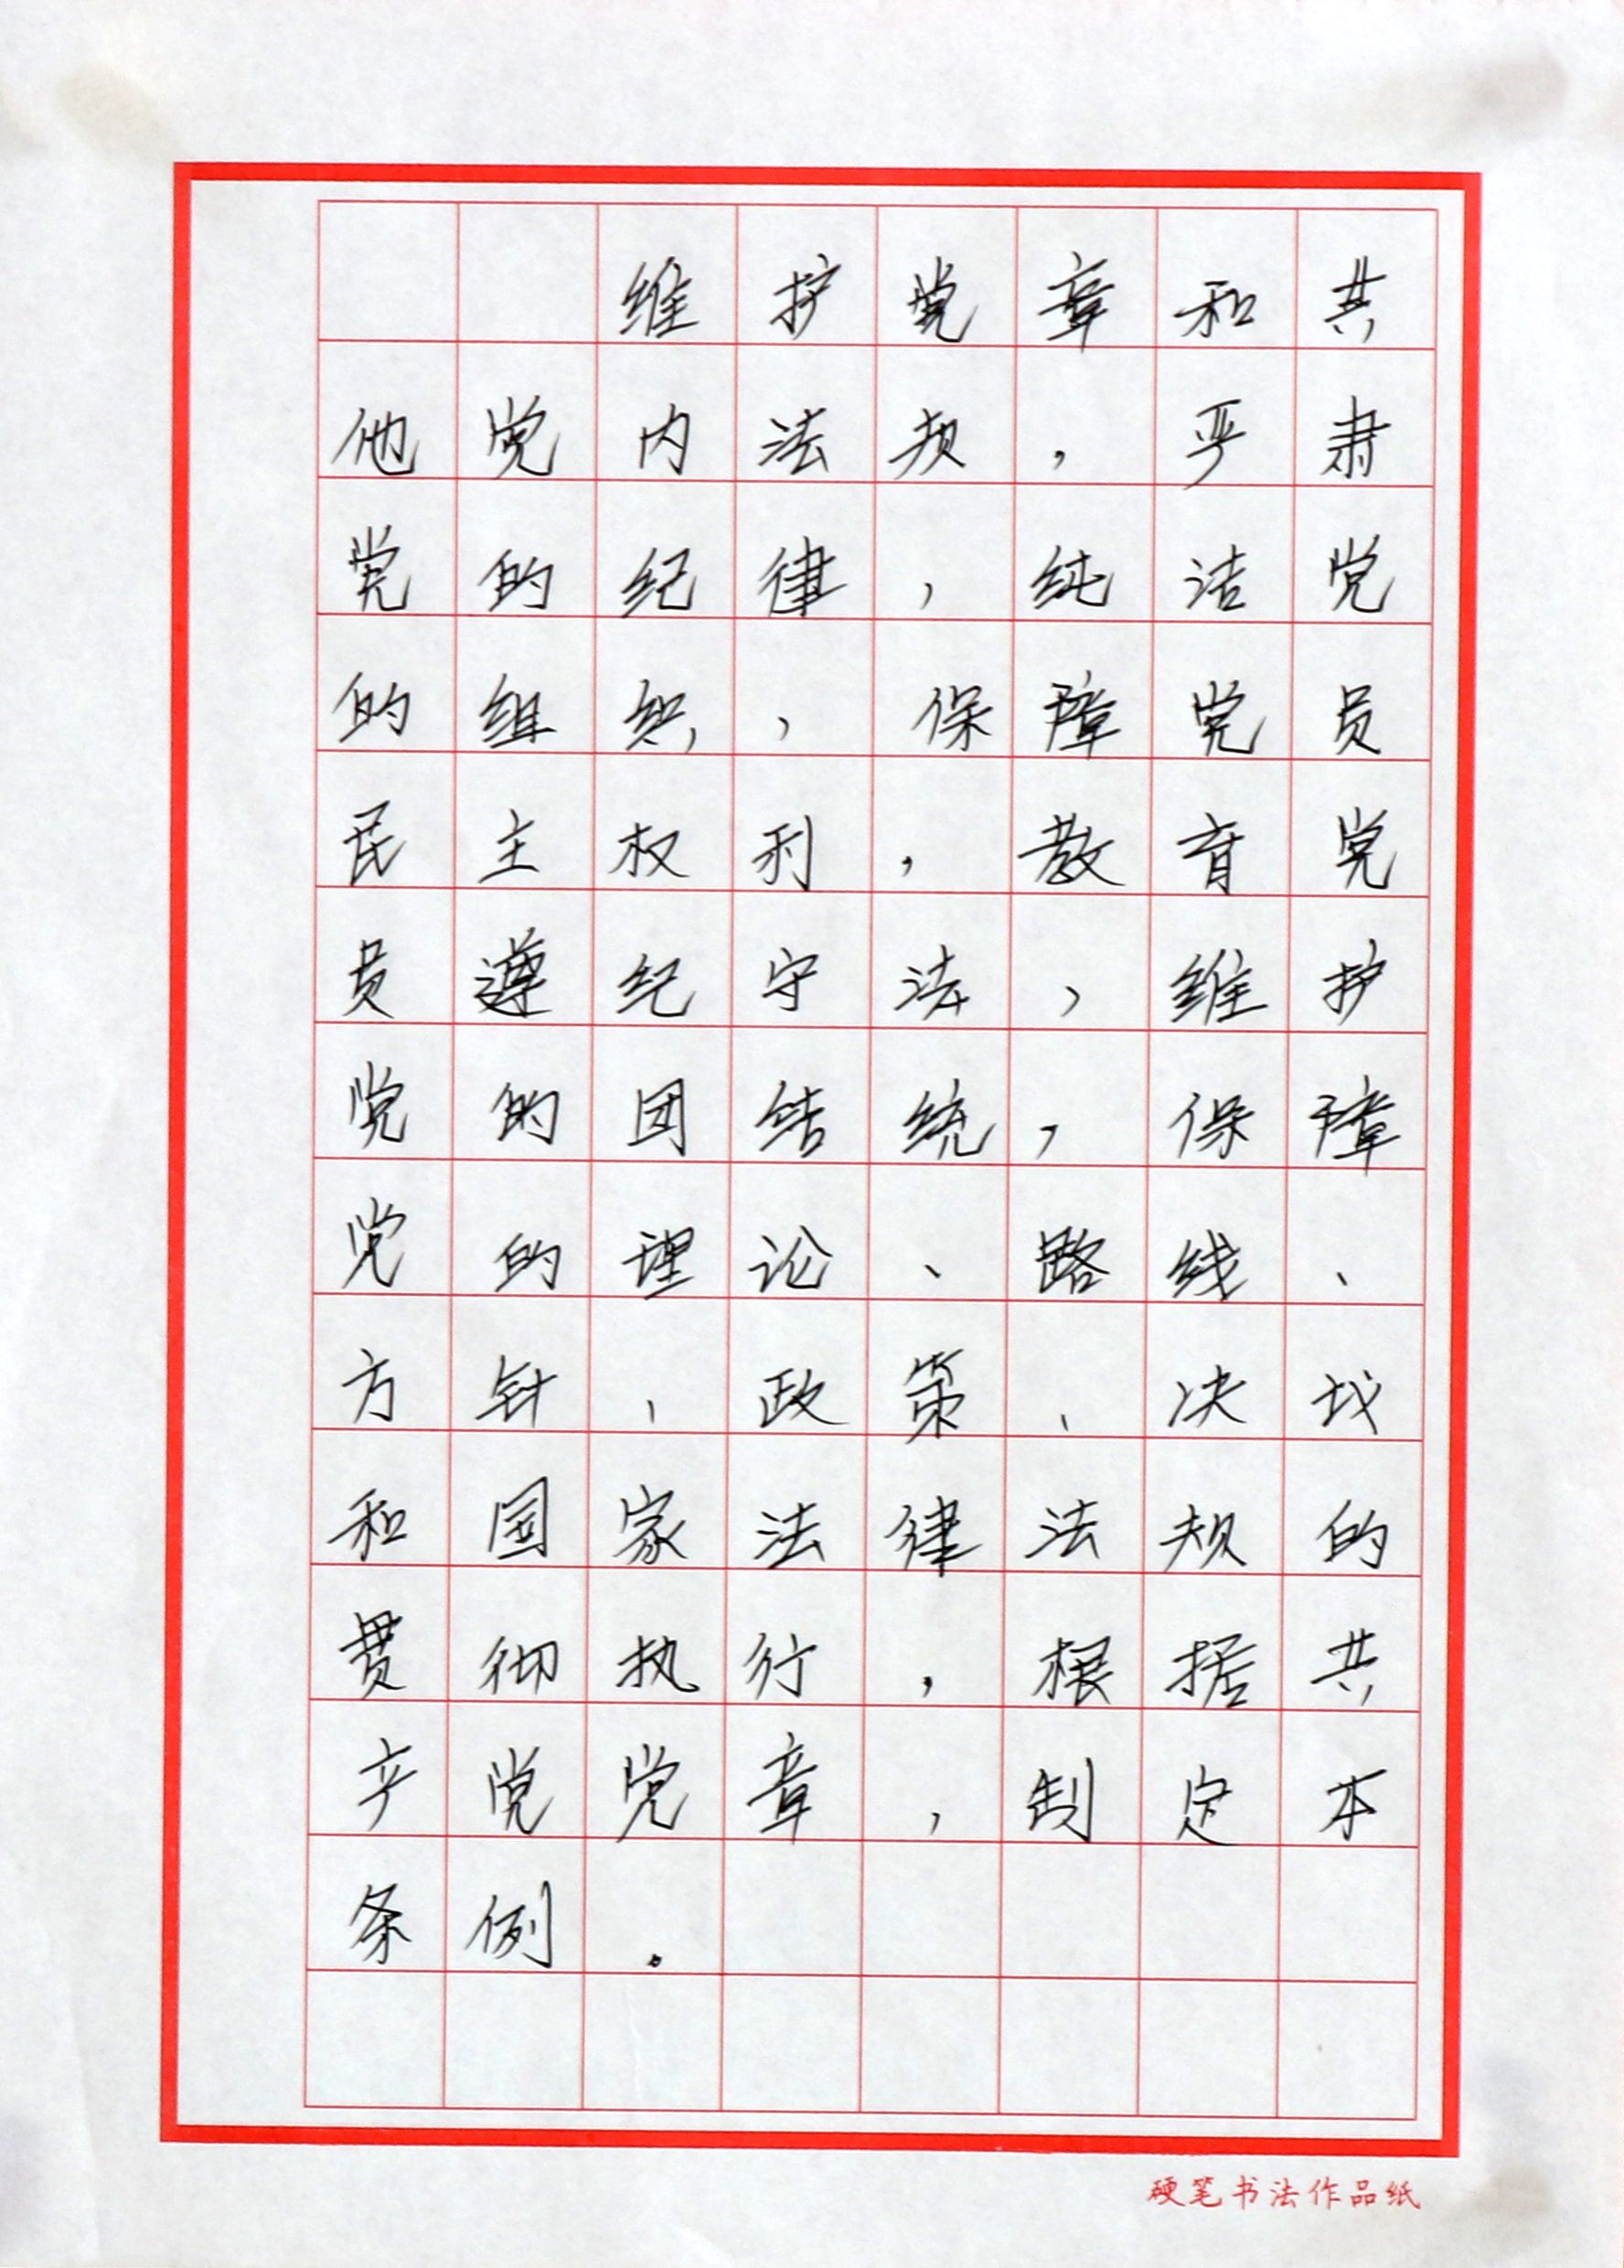 维护党章和其
他党内法规，严肃
党的纪律，纯洁党
的组织，保障党员
民主权利，教育党
员遵纪守法，维护
党的团结统，保障
党的理论、路线、
方针、政策、决议
和国家法律法规的
贯彻执行，根据共
产党党章，制定本
条例。
硬笔书法作品纸